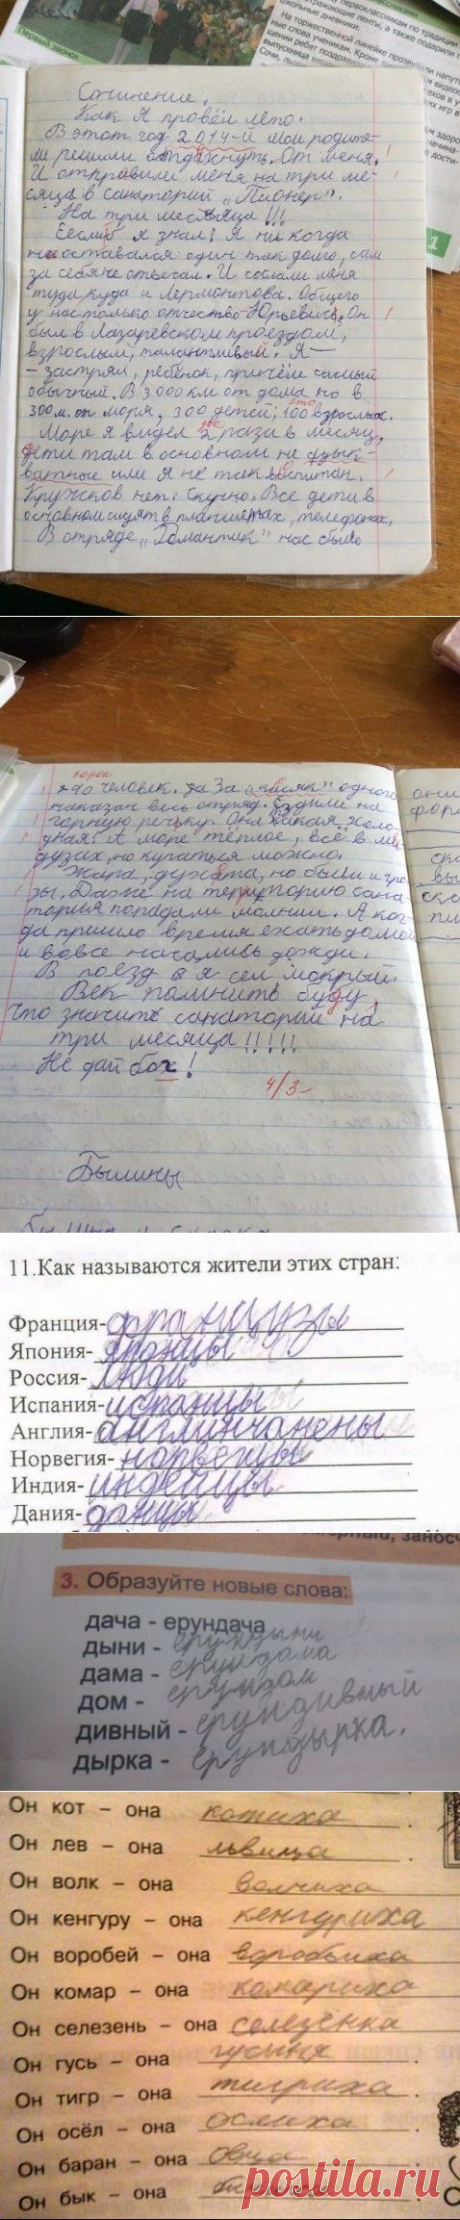 Первый звонок
Сочинение.
Как я провёл лето.
В этот год 2014-й мои родите-
ли решили отдахнуть. От меня.
И отправили меня на три ме-
сяца в санаторий „Пионер".
На три месяца!!!
Еесли б я знал! Я ни когда
не оставался один так долго, сам
за себя не отвечал. И сослали меня
туда, куда и Лермонтова. Общего
у нас только отчество - Юрьевичь. Он
был в Лазаревском проездом,
взрослым, талантливый. Я -
- застрял, ребёнок, причём самый
обычный. В 3 000 км от дома но в
300 м. от моря, 300 детей, 100 взрослых.
Море я видел 2 раза в месяц,
дети там в основном не
или я не так воспитан.
Кружков нет. Скучно. Все дети в
основном сидят в планшетах, телефонах.
В отряде „Романтик" нас было
40 человек. За „касяк" одного
наказан весь отряд. Ездили на
горную речьку. Она какая холо
дная! А море тёплое, всё в ме
дузах, но купаться можно.
Жара, духота, но были и гро
зы. Даже на територию сана-
тория попадали молнии. А ког-
да пришло время ехать домой
и вовсе начались дожди.
В поезд я сел мокрый.
Век помнить буду,
что значить санаторий на
три месяца!!!!!
Не дай бох!
4/3-
Былины
11.Как называются жители этих стран:
Франция- французы
Япония- японцы
Россия- люди
Испания- испанцы
Англия- англинчанены
Норвегия- норвегцы
Индия- индейцы
Дания- данцы
3. Образуйте новые слова:
дача - ерундача
дыни - ерундыни
дама - ерундама
дом - ерундом
дивный - ерундивный
дырка - ерундырка.
Он кот – она котиха.
Он лев – она львица.
Он волк – она волчиха
Он кенгуру – она кенгуриха
Он воробей – она воробьиха
Он комар – она комариха
Он селезень – она селезёнка
Он гусь – она гусыня
Он тигр – она тигриха
Он осёл – она ослиха
Он баран – она овца
Он бык – она
postila.ru